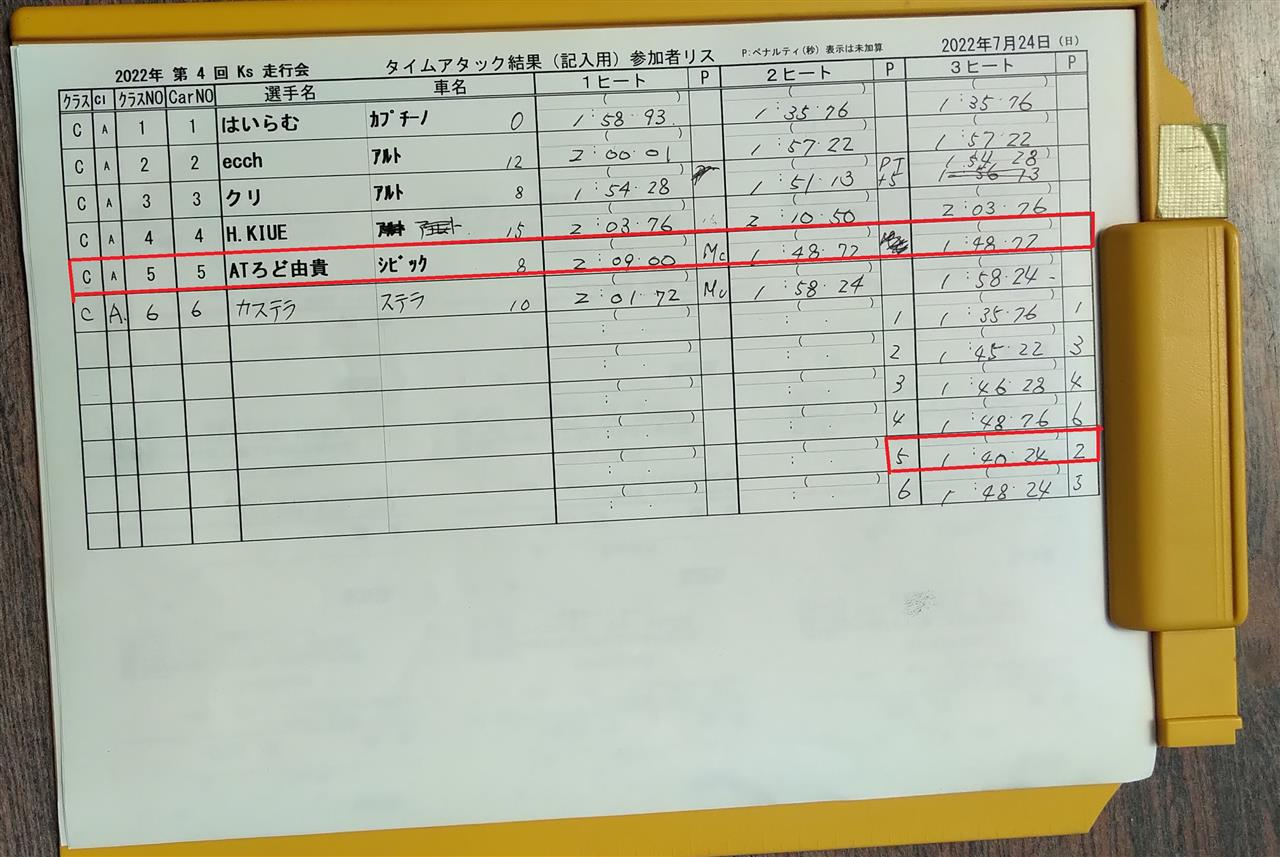 2022年 第 4 回 Ks 走行会 タイムアタック結果（記入用）参加者リス P:ペナルティ(秒) 表示は未加算 2022年7月24日（日）
クラス Cl クラスNO CarNO 選手名 車名 1ヒート P 2ヒート P 3ヒート P
C A 1 1 はいらむ ｶﾌﾟﾁｰﾉ 0 1:58.93 1:35.76 1:35.76
C A 2 2 ecch ｱﾙﾄ 12 2:00.01 1:57.22 1:57.22
C A 3 3 クリ ｱﾙﾄ 8 1:54.28 1:51.13 PT +5 1:54.28
C A 4 4 H.KIUE 15 2:03.76 2:10.50 2:03.76
C A 5 5 ATろど由貴 ｼﾋﾞｯｸ 8 2:09.00 Mc 1:48.72 1:48.72
C A. 6 6 カステラ ステラ 10 2:01.72 1:58.24 1:58.24
1 1:35.76 1
2 1:45.22 3
3 1:46.28 4
4 1:48.76 6
5 1:40.24 2
6 1:48.24 3